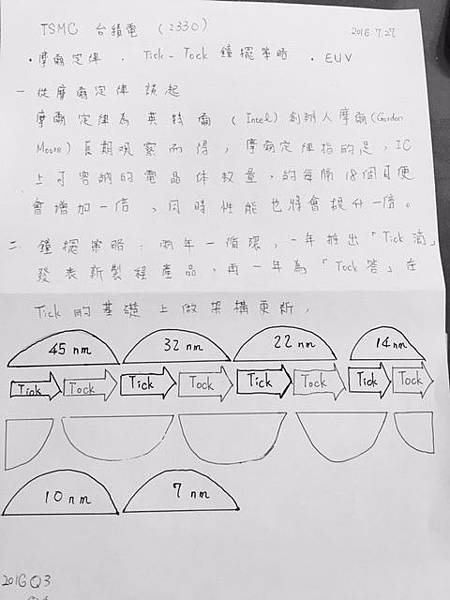 TSMC 台積電 (2330)
2016.7.27
・摩爾定律 ・Tick-Tock 鐘擺策略 ・EUV
一 從摩爾定律談起
摩爾定律為英特爾 (Intel) 創辦人摩爾(Gordon
Moore) 長期观察而得, 摩爾定律指的是, IC
上可容納的電晶体数量, 約每隔18個月便
會增加一倍、同時性能也將會提升一倍。
二、鐘擺策略: 兩年一循環, 一年推出「Tick 滴」
發表新製程產品, 再一年為「Tock答」在
Tick 的基礎上做架構更新,
45 nm 32 nm 22 nm 14 nm
Tick Tock Tick Tock Tick Tock Tick Tock
10 nm 7 nm
2016 Q3